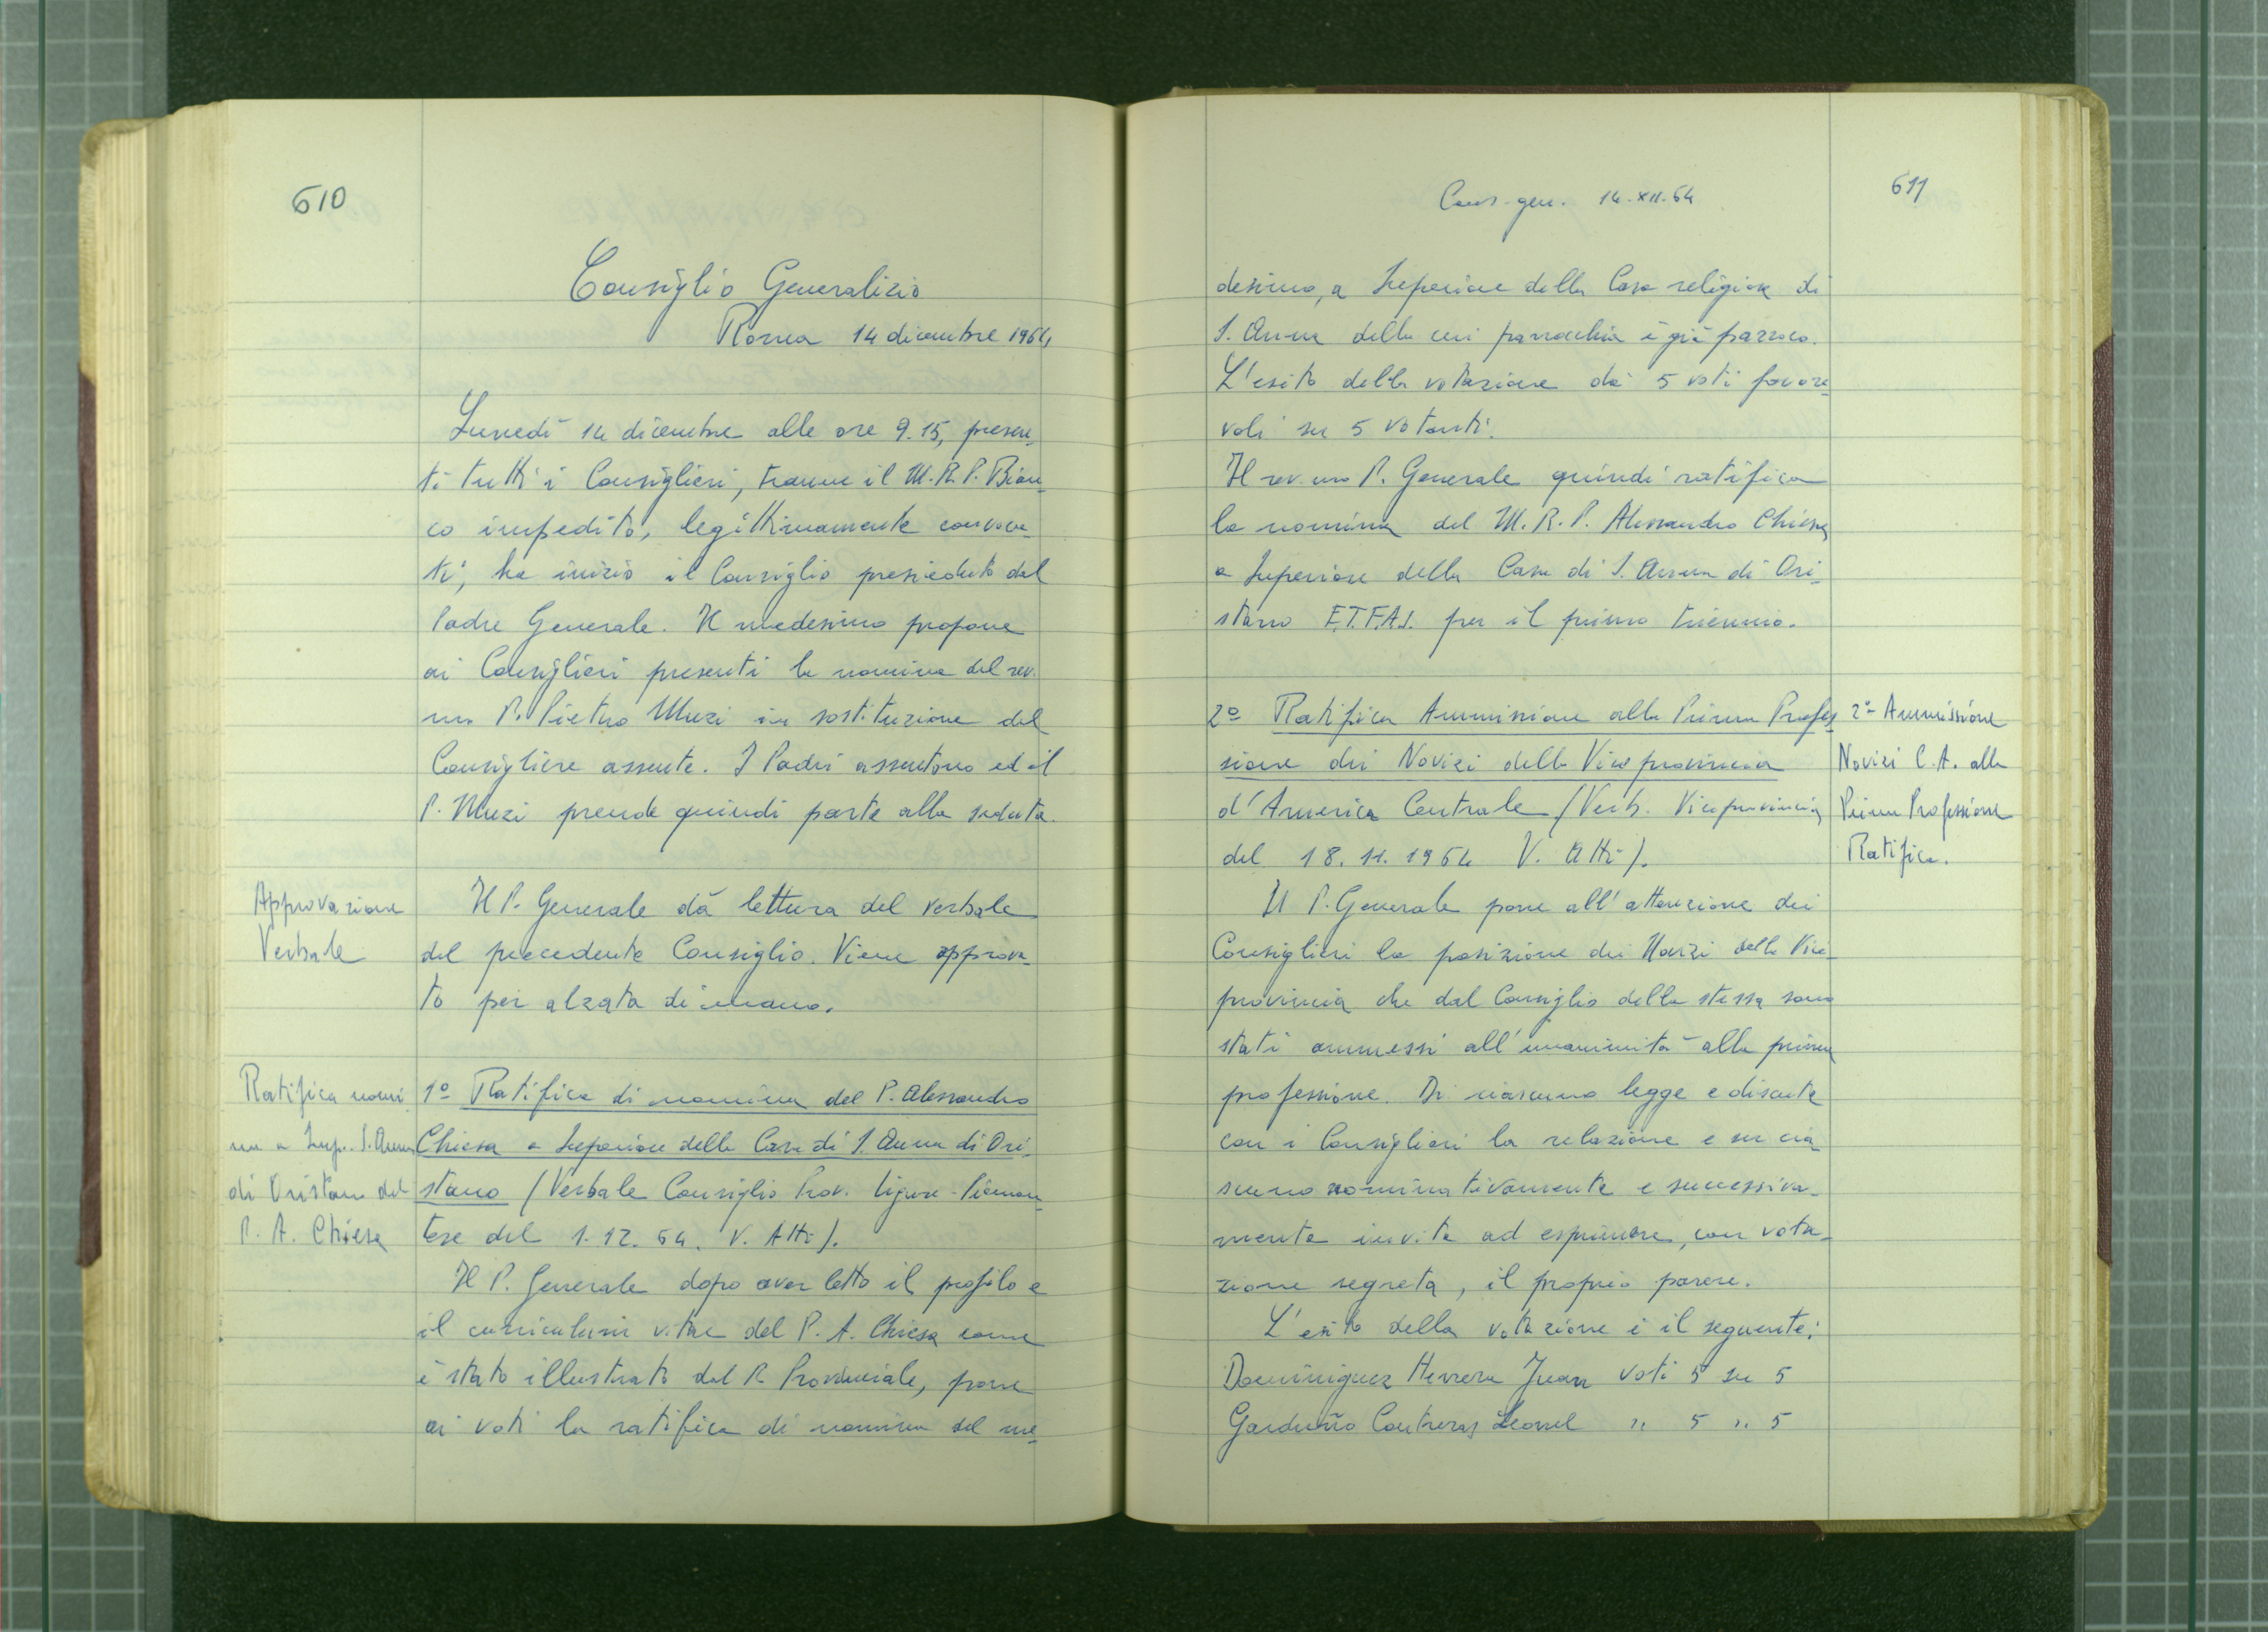 610
Consiglio Generalizio
Roma 14 dicembre 1964
Lunedì 14 dicembre alle ore 9.15, presen-
ti tutti i Consiglieri, tranne il M.R.P. Bian-
co impedito, legittimamente convoca-
ti, ha inizio il Consiglio presieduto dal
Padre Generale. Il medesimo propone
ai Consiglieri presenti la nomina del rev.
mo P. Pietro Muzi in sostituzione del
Consigliere assente. I Padri assentono ed il
P. Muzi prende quindi parte alla seduta.
Approvazione
Verbale
Il P. Generale dà lettura del verbale
del precedente Consiglio. Viene approva-
to per alzata di mano.
Ratifica nomi
na a Sup. S. Anna
di Oristano del
P. A. Chiesa
1º Ratifica di nomina del P. Alessandro
Chiesa a Superiore della Casa di S. Anna di Ori-
stano (Verbale Consiglio Prov. Ligure-Piemon-
tese del 1.12.64. V. Atti).
Il P. Generale dopo aver letto il profilo e
il curriculum vitae del P. A. Chiesa come
è stato illustrato dal P. Provinciale, pone
ai voti la ratifica di nomina del me-
Cons. gen. 14.XII.64
611
desimo, a Superiore della Casa religiosa di
S. Anna della cui parrocchia è già parroco.
L'esito della votazione dà 5 voti favore-
voli su 5 votanti.
Il rev.mo P. Generale quindi ratifica
la nomina del M.R.P. Alessandro Chiesa
a Superiore della Casa di S. Anna di Ori-
stano E.T.F.A.S. per il primo triennio.
2º Ratifica Ammissione alla Prima Profes
sione dei Novizi della Viceprovincia
d'America Centrale (Verb. Viceprovincia
del 18.11.1964 V. Atti).
2º Ammissione
Novizi C.A. alla
Prima Professione
Ratifica.
Il P. Generale pone all'attenzione dei
Consiglieri la posizione dei Novizi della Vice-
provincia che dal Consiglio della stessa sono
stati ammessi all'unanimità alla prima
professione. Di ciascuno legge e discute
con i Consiglieri la relazione e su cia
scuno nominativamente e successiva-
mente invita ad esprimere, con vota-
zione segreta, il proprio parere.
L'esito della votazione è il seguente:
Dominiguez Herrera Juan voti 5 su 5
Garduño Contreras Leonel " 5 " 5